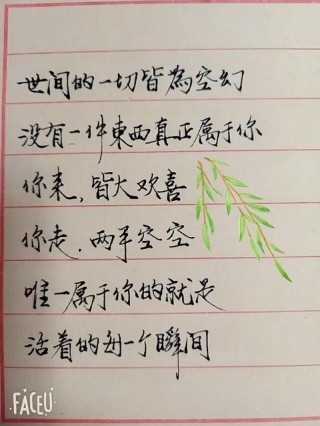 世间的一切皆為空幻
没有一件東西真正属于你
你来,皆大欢喜
你走,两手空空
唯一属于你的就是
活着的每一个瞬间
FACEU